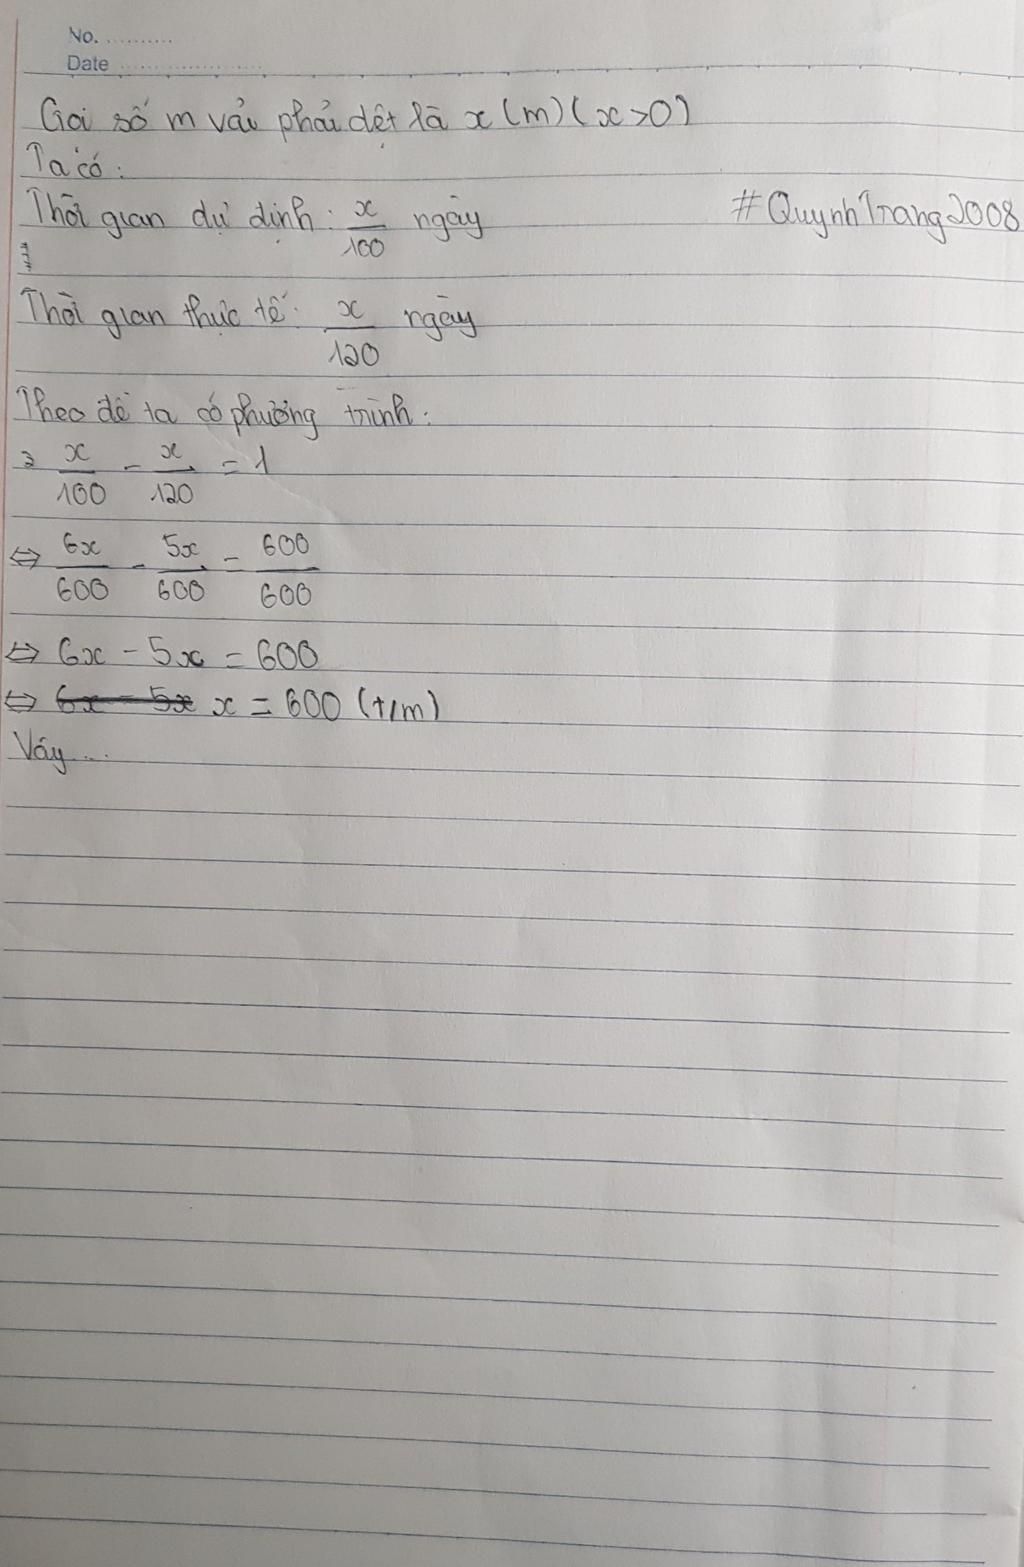 No. ..........
Date ......................
Gọi số m vải phải dệt là x (m) (x>0)
Ta có:
Thời gian dự định: x/100 ngày
#QuynhTrang2008
Thời gian thực tế: x/120 ngày
Theo đề ta có phương trình:
x/100 - x/120 = 1
⇔ 6x/600 - 5x/600 = 600/600
⇔ 6x - 5x = 600
⇔ 6x - 5x x = 600 (t/m)
Vậy ...